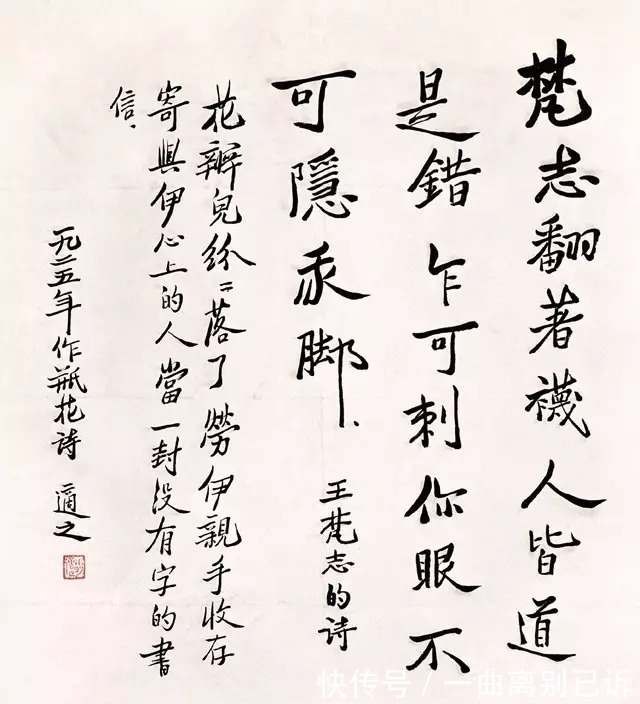 梵志翻著襪人皆道
是錯乍可刺你眼不
可隱我脚、
王梵志的詩
花瓣兒紛〻落了勞伊親手收存
寄與伊心上的人當一封没有字的書
信、
一九二五年作瓶花詩 適之
快传号 / 一曲离别已诉